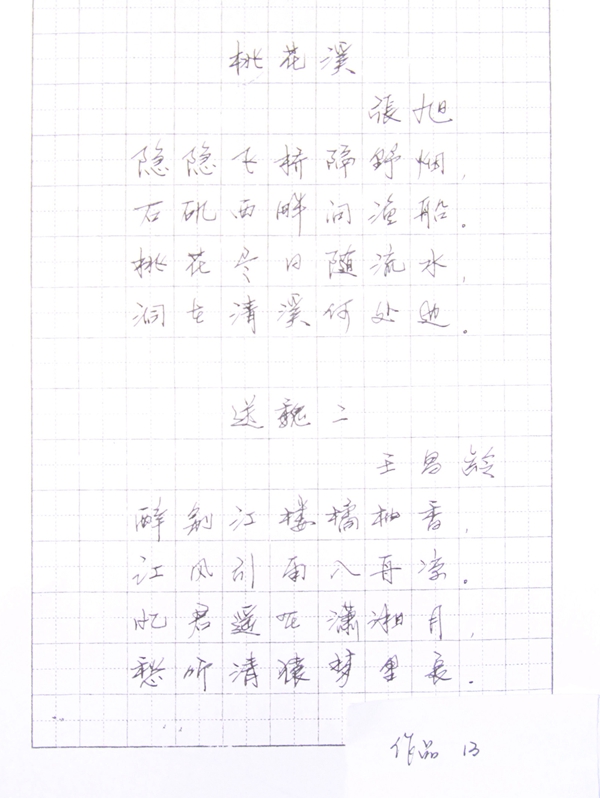 桃花溪
張旭
隐隐飞桥隔野烟,
石矶西畔问渔船。
桃花尽日随流水,
洞在清溪何处边。
送魏二
王昌龄
醉别江楼橘柚香,
江风引雨入舟凉。
忆君遥在潇湘月,
愁听清猿梦里长。
作品 13